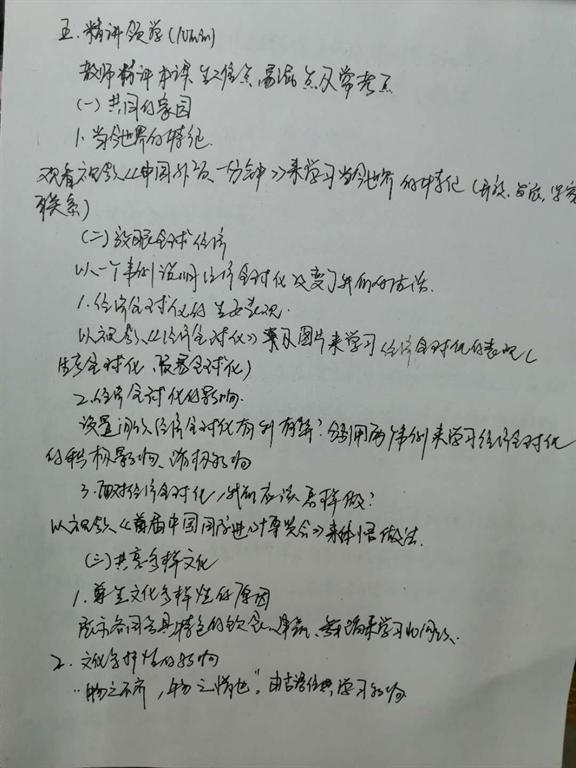 五、精讲领学(10min)
教师精评本课重难点、易混点及常考点
(一)共同的家园
1、当今世界的特征.
观看视频《中国外交一分钟》来学习当今世界的特征(开放、发展、
联系)
(二)放眼全球经济
以一个事例说明经济全球化改变了我们的生活.
1.经济全球化的主要表现.
以视频《经济全球化》及图片来学习经济全球化的表现(
生产全球化、贸易全球化)
2.经济全球化的影响.
设置问题经济全球化有利有弊?分别用两个事例来学习经济全球化
的积极影响、消极影响
3.面对经济全球化,我们应该怎样做?
以视频《首届中国国际进口博览会》来体悟做法.
(三)共享多样文化
1.产生文化多样性的原因
展示各国各具特色的饮食、建筑、来学习
2.文化多样性的影响
“物之不齐,物之情也”。由古语经典学习影响